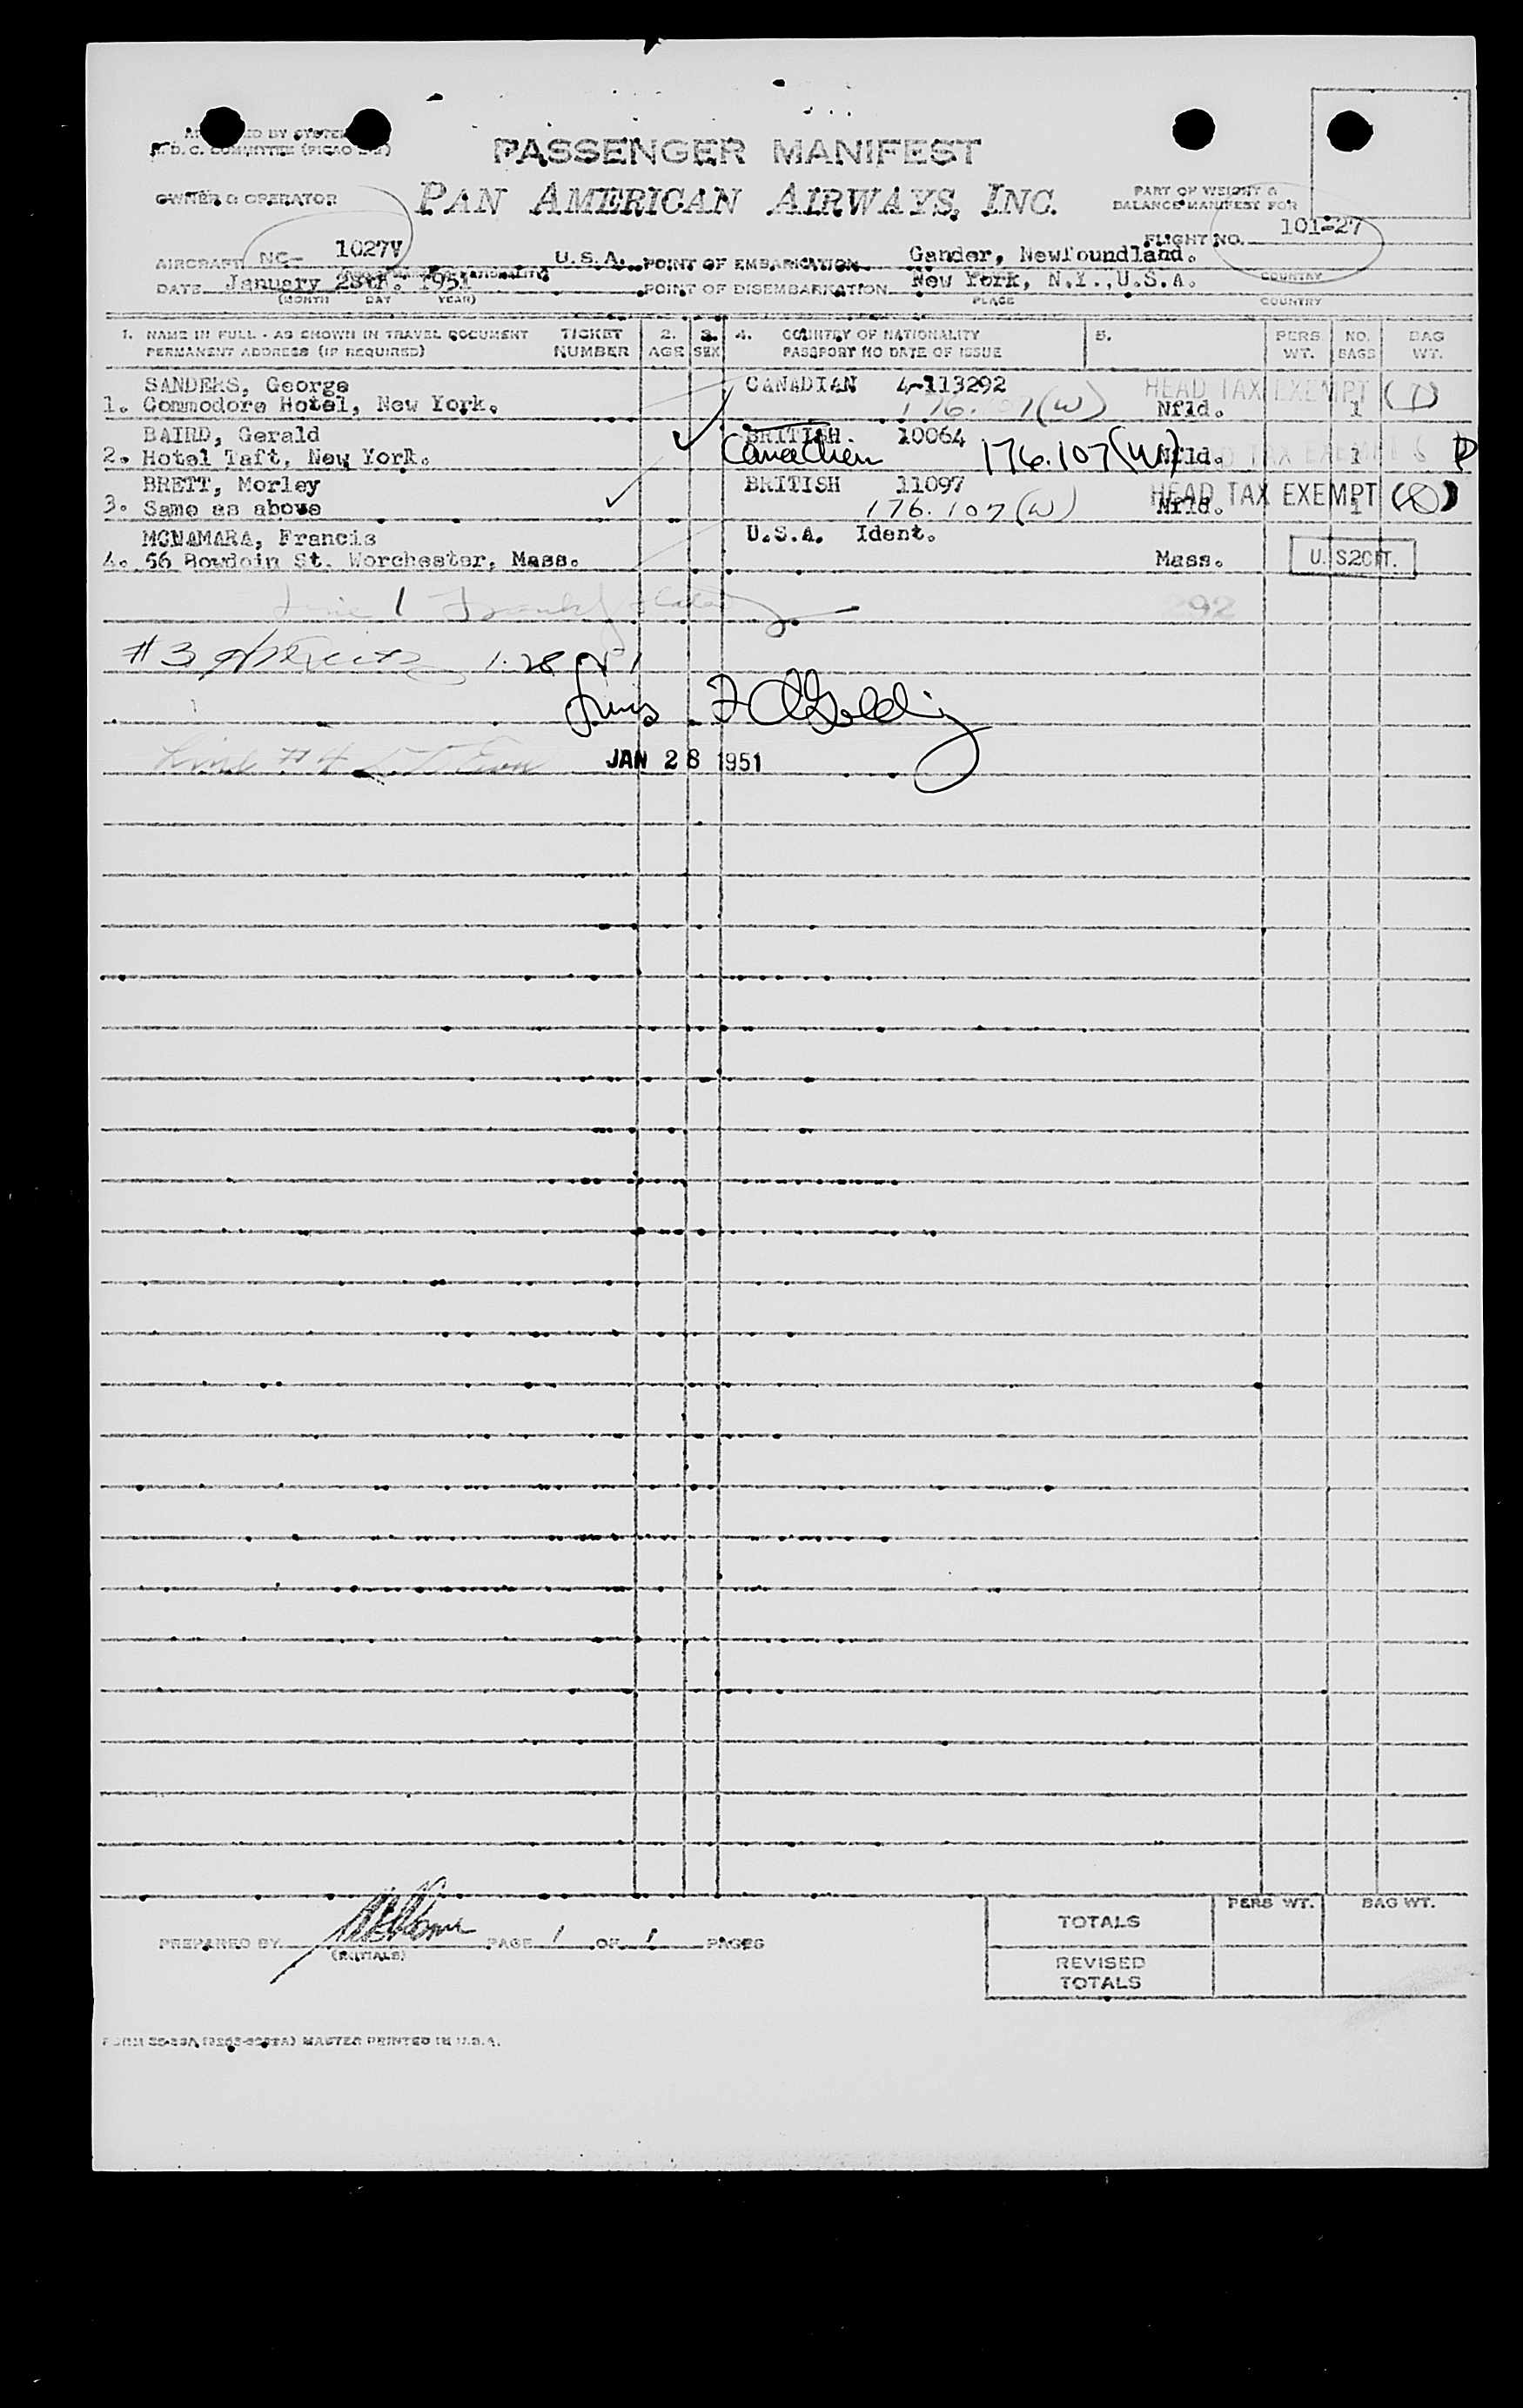 PASSENGER MANIFEST
OWNER & OPERATOR
PAN AMERICAN AIRWAYS, INC.
PART OF WEIGHT &
BALANCE MANIFEST FOR
FLIGHT NO. 101-27
AIRCRAFT NC- 1027V U.S.A. POINT OF EMBARKATION Gander, Newfoundland.
COUNTRY
DATE January 28th. 1951 POINT OF DISEMBARKATION New York, N.Y.,U.S.A.
(MONTH DAY YEAR) PLACE COUNTRY
1. NAME IN FULL - AS SHOWN IN TRAVEL DOCUMENT TICKET 2. 3. 4. COUNTRY OF NATIONALITY 5. PERS NO. BAG
PERMANENT ADDRESS (IF REQUIRED) NUMBER AGE SEX PASSPORT NO DATE OF ISSUE WT. BAGS WT.
SANDERS, George CANADIAN 4-113292 HEAD TAX EXEMPT (1)
1. Commodore Hotel, New York. 176.107(W) Nfld. 1
BAIRD, Gerald BRITISH. 10064
2. Hotel Taft, New York. Canadian 176.107(W) Nfld. HEAD TAX EXEMPT 1 P
BRETT, Morley BRITISH 11097 HEAD TAX EXEMPT
3. Same as above 176.107(W) Nfld. 1
MCNAMARA, Francis U.S.A. Ident.
4. 56 Bowdoin St. Worchester, Mass. Mass. U.S. CIT. 2
Line 1 Frank 292
#3 1.28.51
Golding
Line #4 JAN 28 1951
PREPARED BY PAGE 1 OF 1 PAGES
(INITIALS)
PERS WT. BAG WT.
TOTALS
REVISED
TOTALS
MASTER PRINTED IN U.S.A.